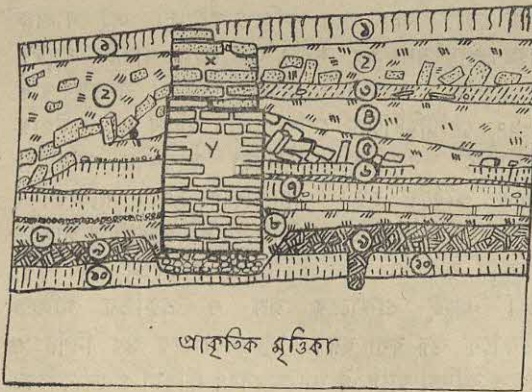 ১ ১
২ x ২
৩
৪
Y ৫
৬
৭
৮ ৮
৯ ৯
১০ ১০
প্রাকৃতিক মৃত্তিকা